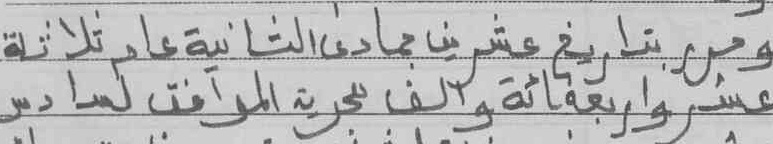 وحرر بتاريخ عشرين جمادى الثانية عام ثلاثة
عشر واربعمائة والف هجرية الموافق لسادس